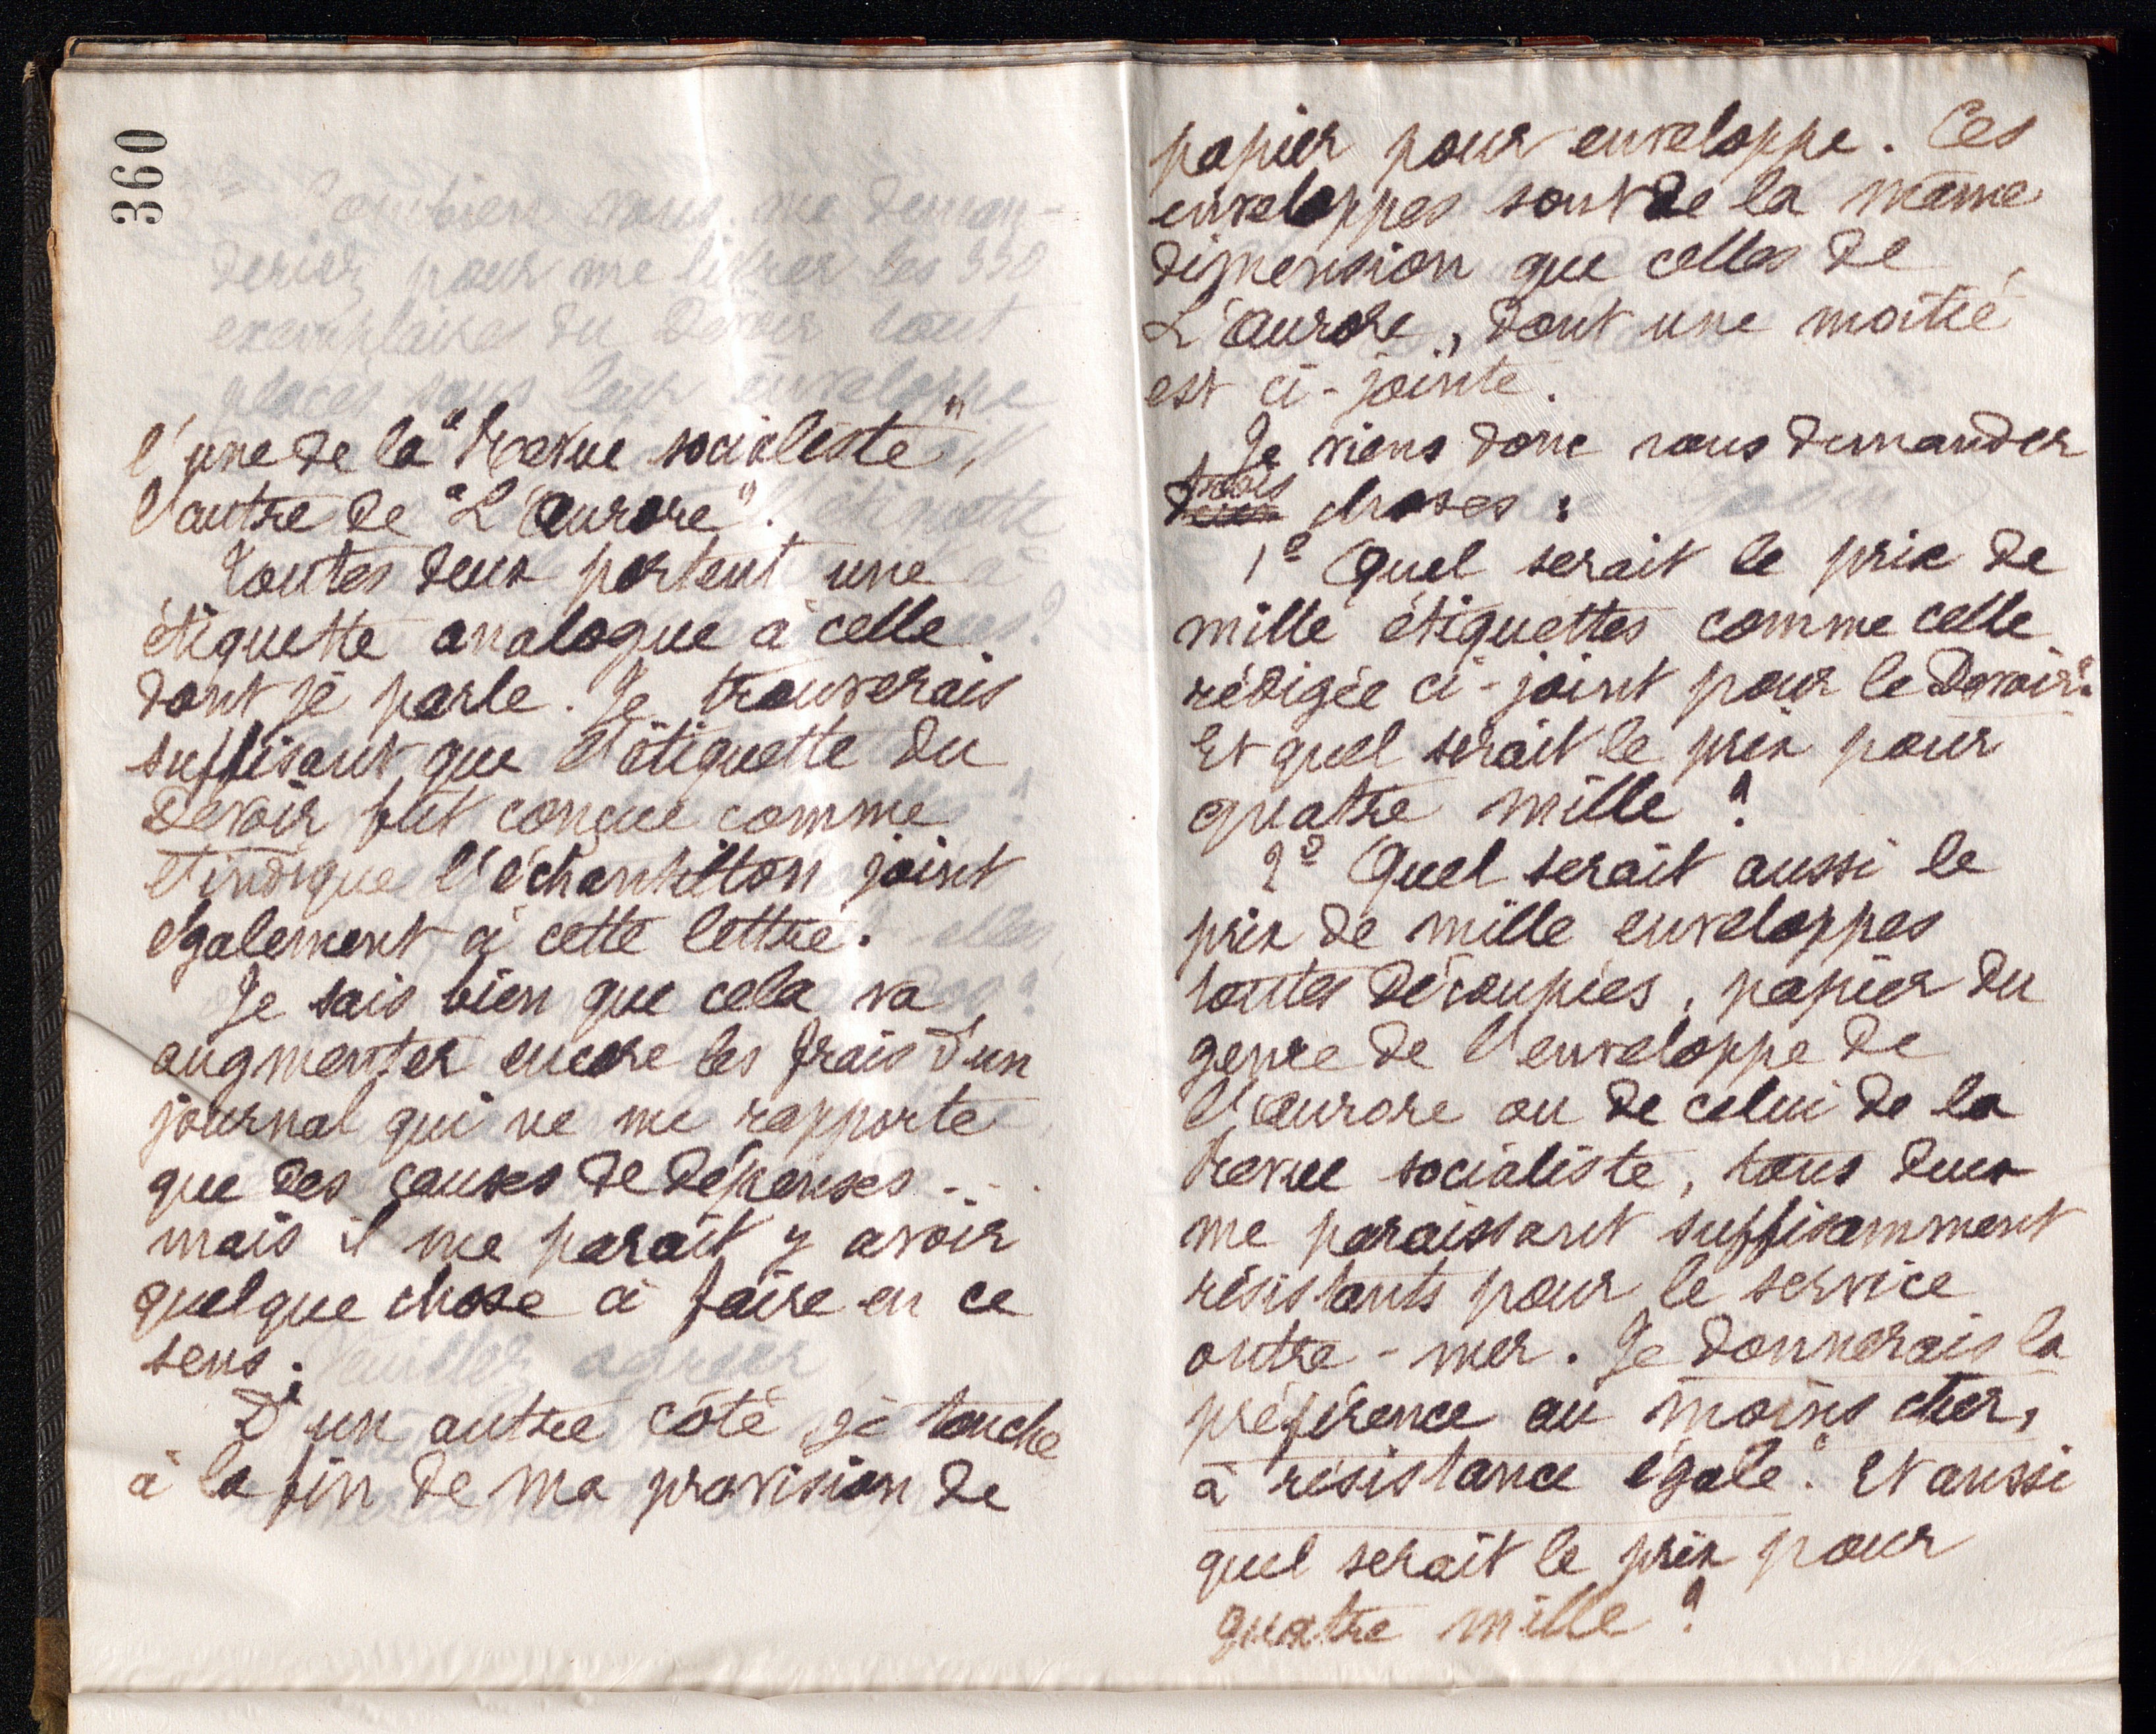 360
l'une de la "Revue socialiste",
l'autre de "L'Aurore".
Toutes deux portent une
étiquette analogue à celle
dont je parle. Je trouverais
suffisant que l'étiquette du
Devoir fût conçue comme
l'indique l'échantillon joint
également à cette lettre.
Je sais bien que cela va
augmenter encore les frais d'un
journal qui ne me rapporte
que des causes de dépenses...
mais il me parait y avoir
quelque chose à faire en ce
sens.
D'un autre côté je touche
à la fin de ma provision de
papier pour enveloppe. Ces
enveloppes sont de la même
dimension que celles de
L'Aurore, dont une moitié
est ci-jointe.
Je viens donc vous demander
trois
deux choses :
1º Quel serait le prix de
mille étiquettes comme celle
rédigée ci-joint pour le Devoir?
Et quel serait le prix pour
quatre mille ?
2º Quel serait aussi le
prix de mille enveloppes
toutes découpées, papier du
genre de l'enveloppe de
l'Aurore ou de celui de la
Revue socialiste, tous deux
me paraissant suffisamment
résistants pour le service
outre-mer. Je donnerais la
préférence au moins cher,
à résistance égale. Et aussi
quel serait le prix pour
quatre mille ?